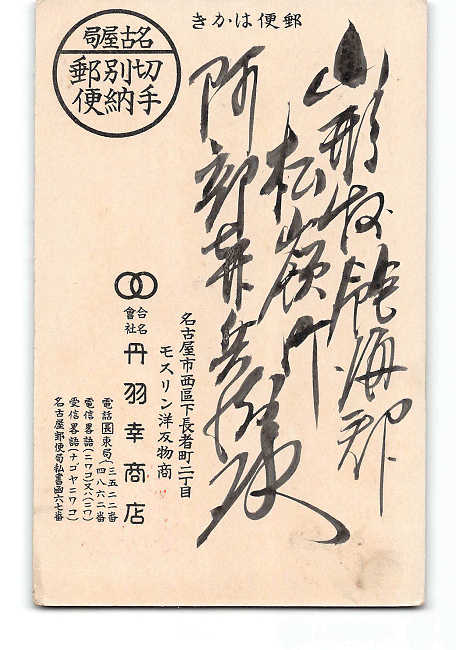 郵便はかき
名古屋局
切手別納郵便
山形縣飽海郡
松嶺町
阿部
名古屋市西區下長者町二丁目
モスリン洋反物商
合名會社 丹羽幸商店
電話 東局 三五二二番 四八六二番
電信畧語(ニワコ)又ハ(ニワ)
受信畧語(ナゴヤニワコ)
名古屋郵便局私書凾六七番